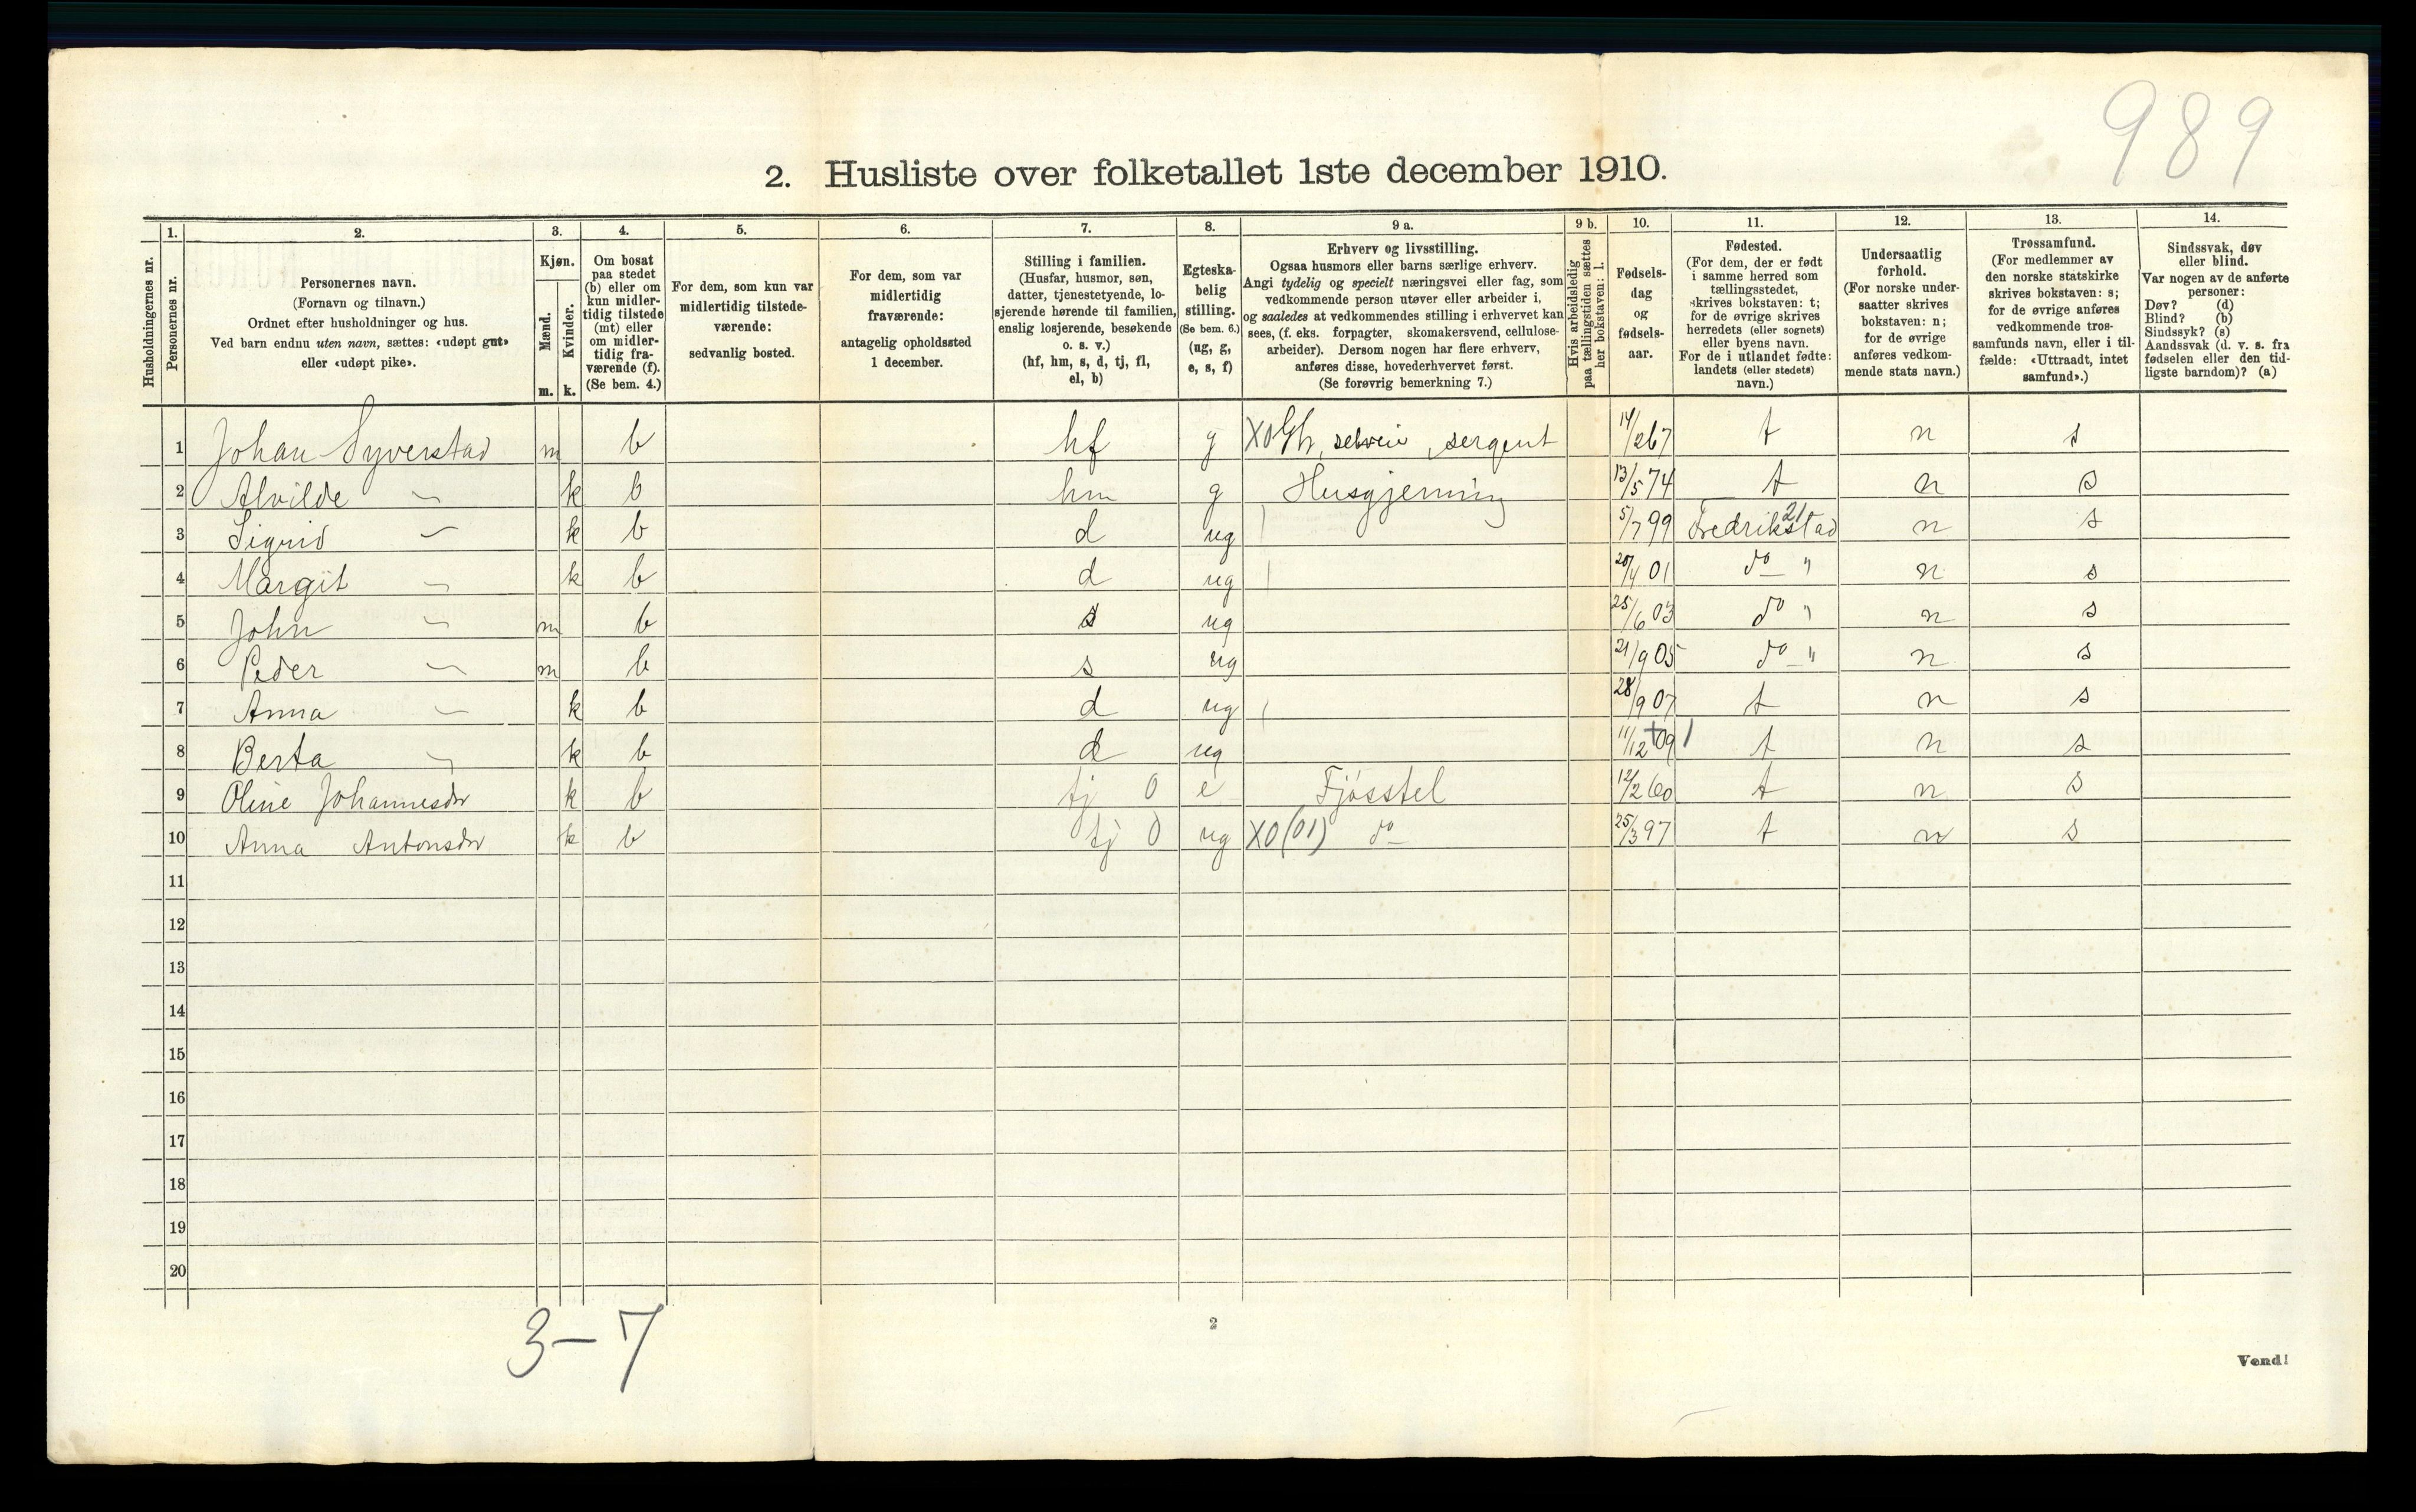 989
2. Husliste over folketallet 1ste december 1910.
Husholdningernes nr.
1.
Personernes nr.
2.
Personernes navn.
(Fornavn og tilnavn.)
Ordnet efter husholdninger og hus.
Ved barn endnu uten navn, sættes: «udøpt gut»
eller «udøpt pike».
3.
Kjøn.
Mænd.
Kvinder.
m. k.
4.
Om bosat
paa stedet
(b) eller om
kun midler-
tidig tilstede
(mt) eller
om midler-
tidig fra-
værende (f).
(Se bem. 4.)
5.
For dem, som kun var
midlertidig tilstede-
værende:
sedvanlig bosted.
6.
For dem, som var
midlertidig
fraværende:
antagelig opholdssted
1 december.
7.
Stilling i familien.
(Husfar, husmor, søn,
datter, tjenestetyende, lo-
sjerende hørende til familien,
enslig losjerende, besøkende
o. s. v.)
(hf, hm, s, d, tj, fl,
el, b)
8.
Egteska-
belig
stilling.
(Se bem. 6.)
(ug, g,
e, s, f)
9 a.
Erhverv og livsstilling.
Ogsaa husmors eller barns særlige erhverv.
Angi tydelig og specielt næringsvei eller fag, som
vedkommende person utøver eller arbeider i,
og saaledes at vedkommendes stilling i erhvervet kan
sees, (f. eks. forpagter, skomakersvend, cellulose-
arbeider). Dersom nogen har flere erhverv,
anføres disse, hovederhvervet først.
(Se forøvrig bemerkning 7.)
9 b.
Hvis arbeidsledig
paa tællingstiden sættes
her bokstaven: l.
10.
Fødsels-
dag
og
fødsels-
aar.
11.
Fødested.
(For dem, der er født
i samme herred som
tællingsstedet,
skrives bokstaven: t;
for de øvrige skrives
herredets (eller sognets)
eller byens navn.
For de i utlandet fødte:
landets (eller stedets)
navn.)
12.
Undersaatlig
forhold.
(For norske under-
saatter skrives
bokstaven: n;
for de øvrige
anføres vedkom-
mende stats navn.)
13.
Trossamfund.
(For medlemmer av
den norske statskirke
skrives bokstaven: s;
for de øvrige anføres
vedkommende tros-
samfunds navn, eller i til-
fælde: «Uttraadt, intet
samfund».)
14.
Sindssvak, døv
eller blind.
Var nogen av de anførte
personer:
Døv? (d)
Blind? (b)
Sindssyk? (s)
Aandssvak (d. v. s. fra
fødselen eller den tid-
ligste barndom)? (a)
1 Johan Syverstad m b hf g X0 Gbr, selveier, sergent 14/2 67 t n s
2 Alvilde — k b hm g Husgjerning 13/5 74 t n s
3 Sigrid — k b d ug 5/7 99 Fredrikstad 21 n s
4 Margit — k b d ug 20/4 01 do — " n s
5 John — m b s ug 25/6 03 do " n s
6 Peder — m b s ug 21/9 05 do — " n s
7 Anna — k b d ug 28/9 07 t n s
8 Berta — k b d ug 11/12 + 09 1 t n s
9 Oline Johannesdr k b tj 0 e Fjösstel 12/2 60 t n s
10 Anna Antonsdr k b tj 0 ug X0 (01) do — 25/3 97 t n s
11
12
13
14
15
16
17
18
19
20
3-7
2
Vend!